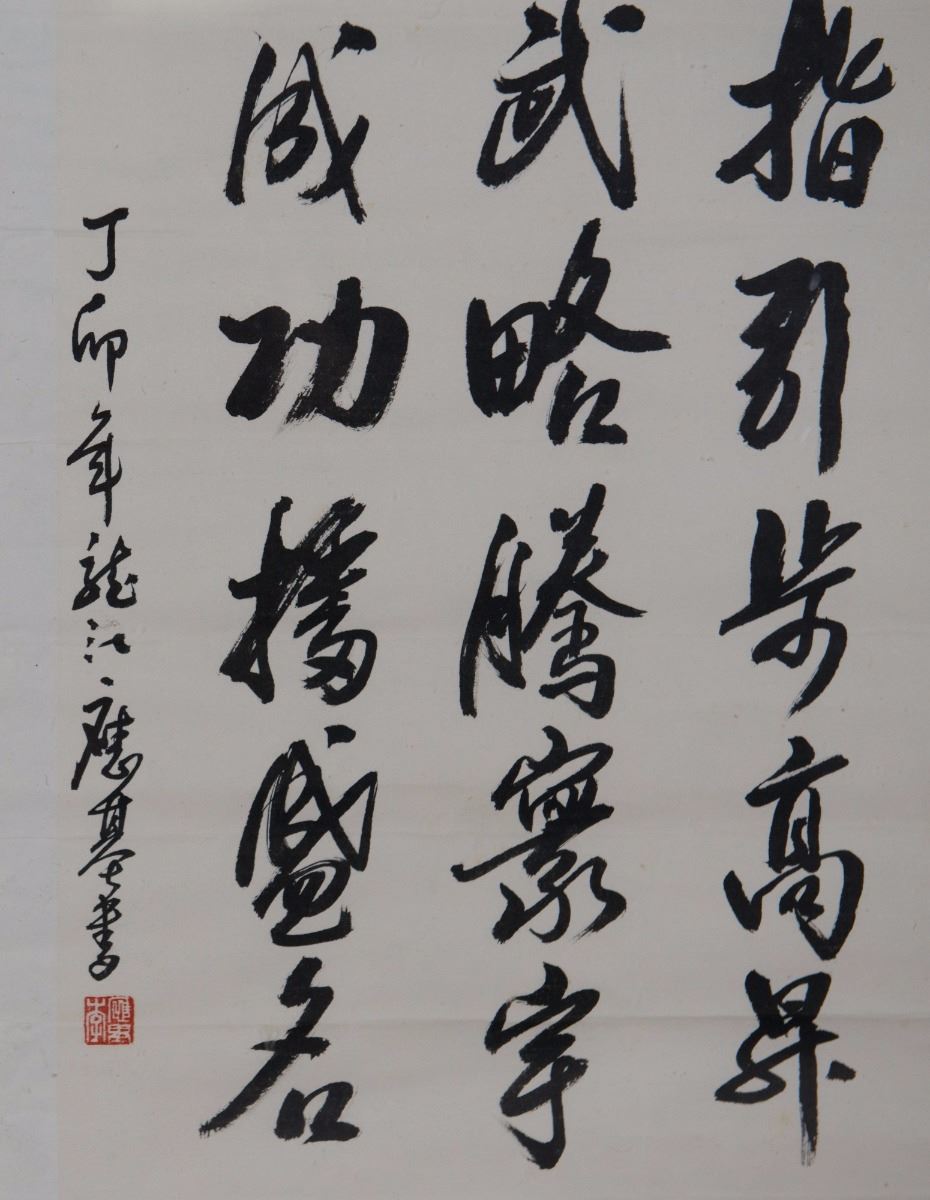 指引步高昇
武略騰寰宇
成功播盛名
丁卯年龍江應基書